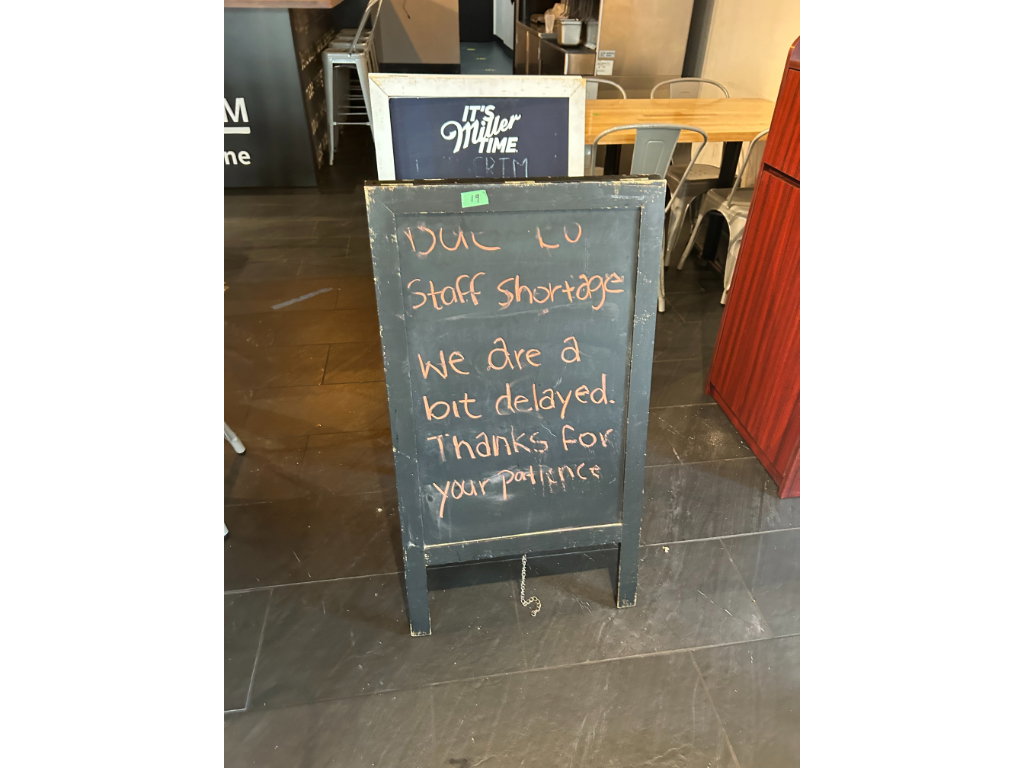 M
me
IT'S
Miller
TIME
19
Due to
Staff shortage
We are a
bit delayed.
Thanks for
your patience